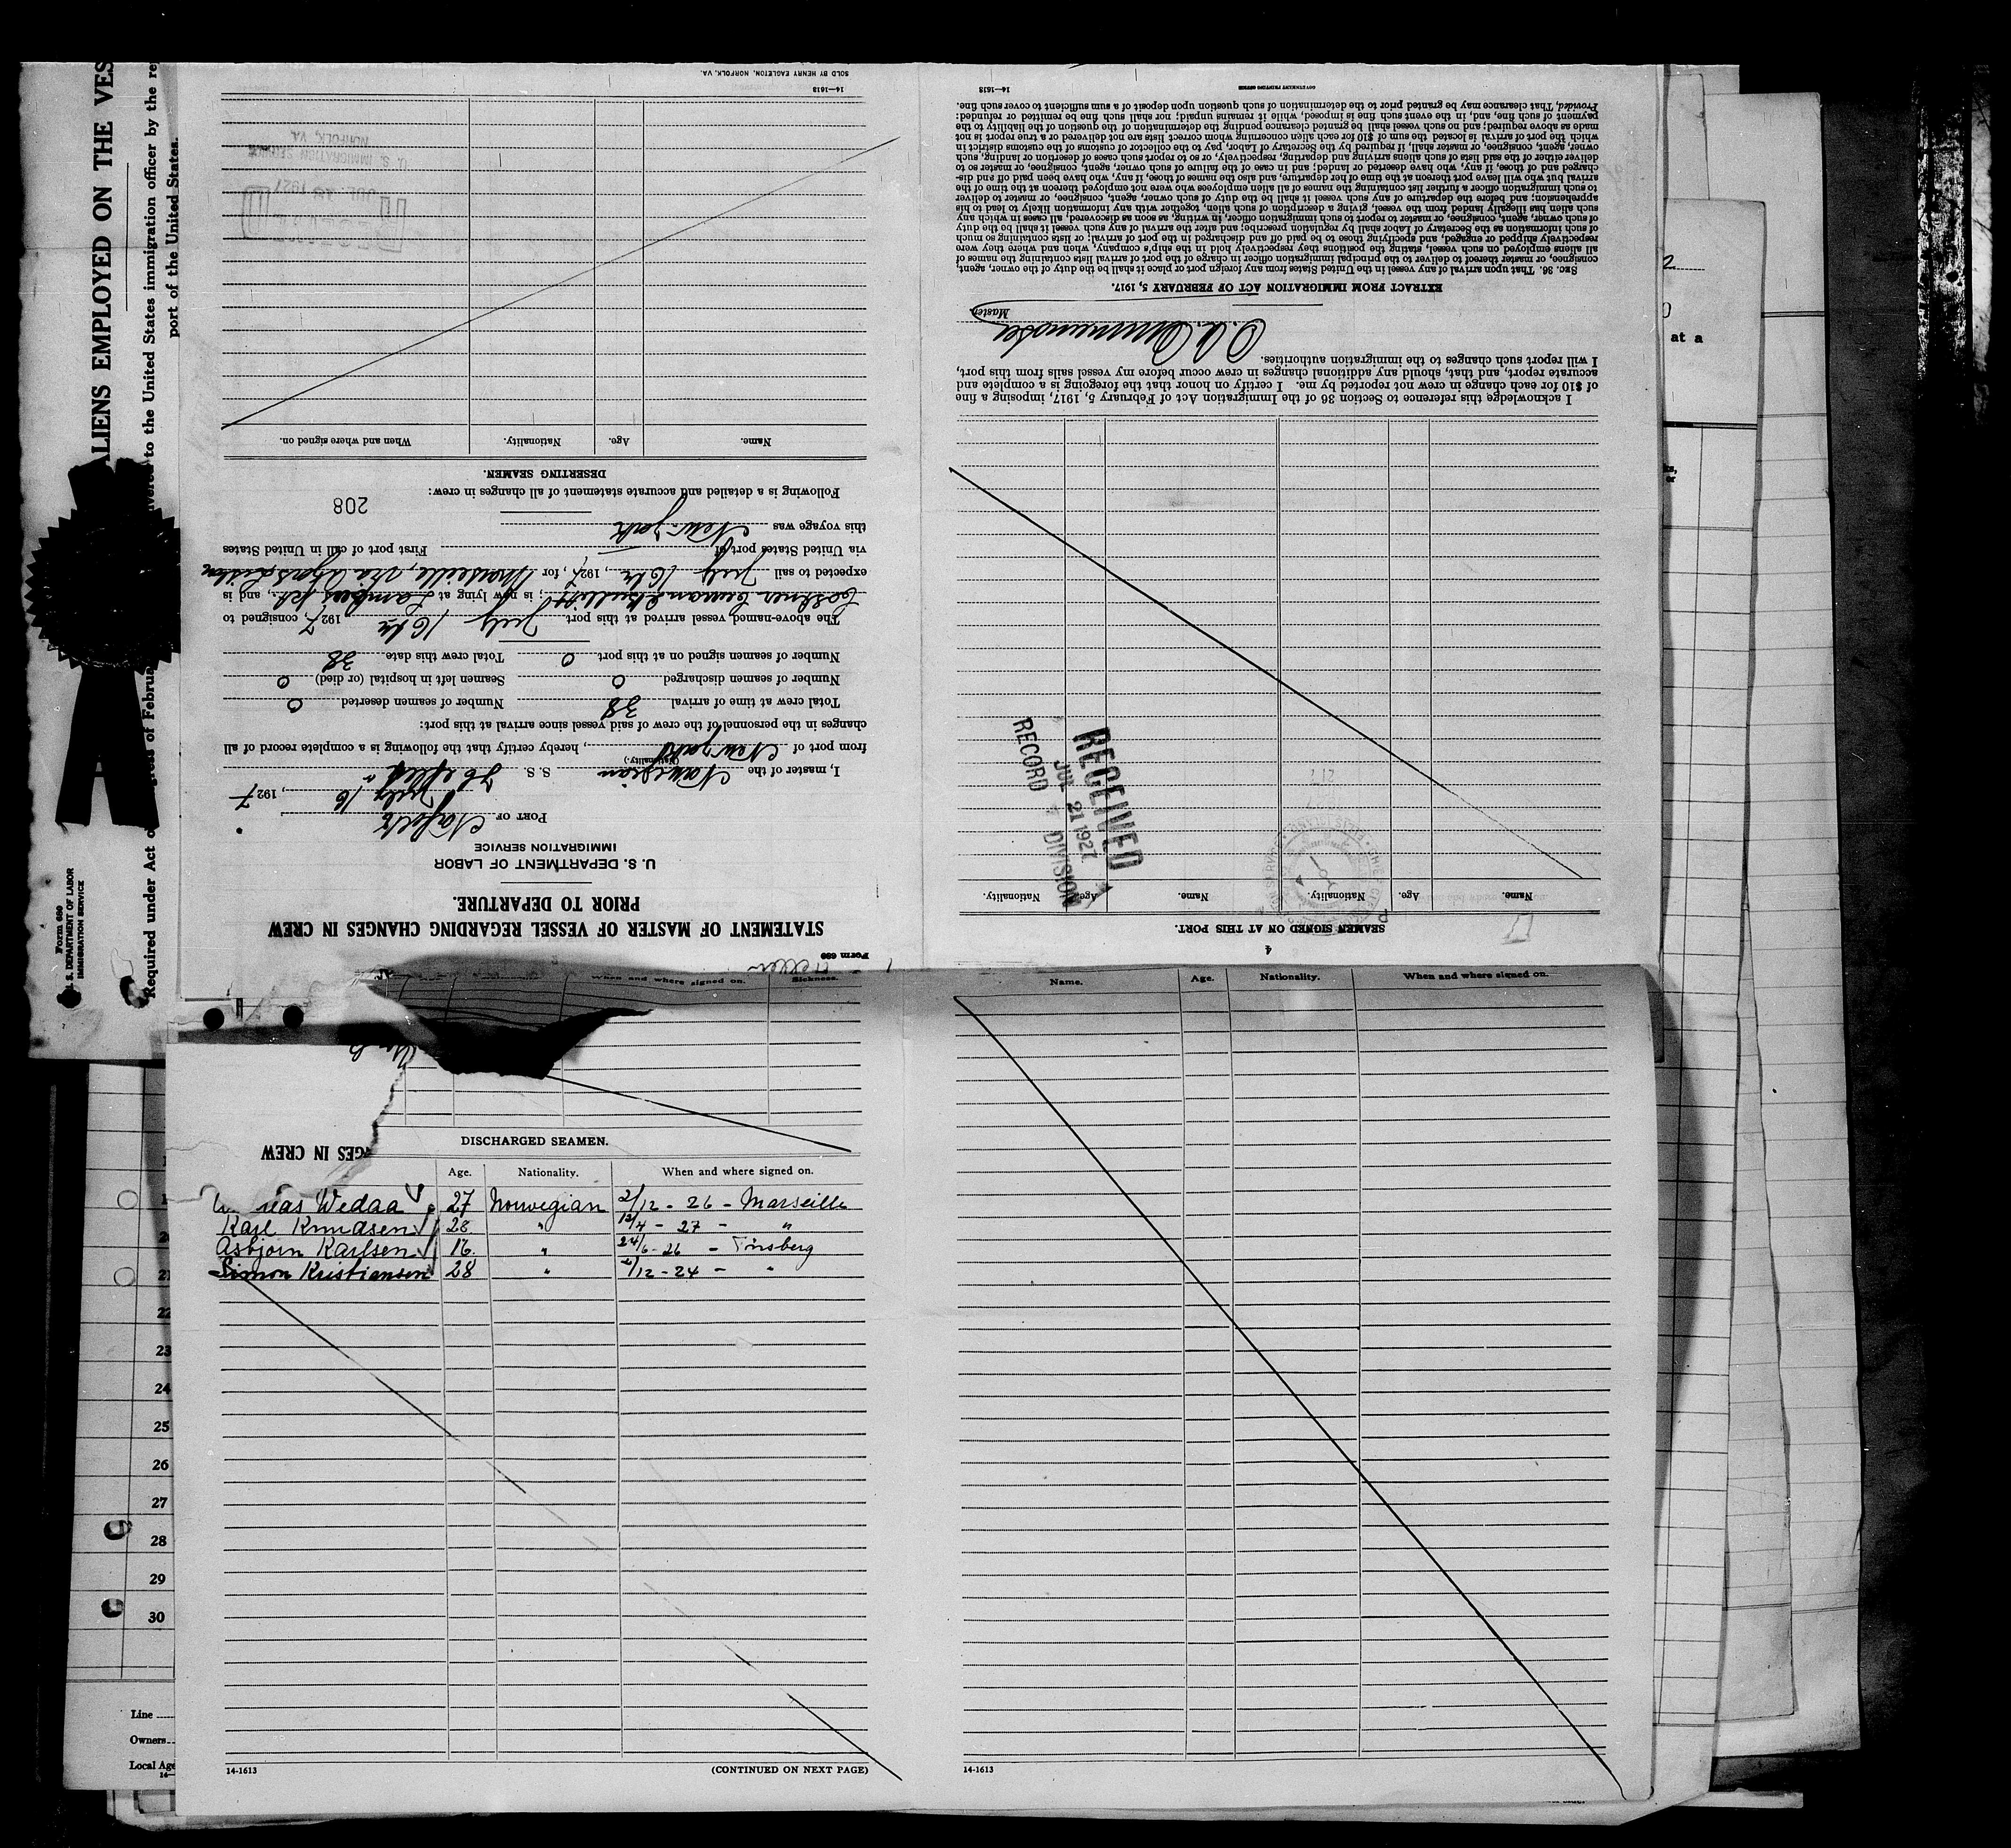 ALIENS EMPLOYED ON THE VES
to the United States immigration officer by the re
port of the United States.
Required under Act
gress of Februa
Form 689
U. S. DEPARTMENT OF LABOR
IMMIGRATION SERVICE
Form 689
STATEMENT OF MASTER OF VESSEL REGARDING CHANGES IN CREW
PRIOR TO DEPARTURE.
U. S. DEPARTMENT OF LABOR
IMMIGRATION SERVICE
PORT OF Norfolk
July 16, 1927
I, master of the Norwegian S. S.
(Nationality.)
from port of New York, hereby certify that the following is a complete record of all
changes in the personnel of the crew of said vessel since arrival at this port:
Total crew at time of arrival 38 Number of seamen deserted 0
Number of seamen discharged 0 Seamen left in hospital (or died) 0
Number of seamen signed on at this port 0 Total crew this date 38
The above-named vessel arrived at this port July 16th, 1927, consigned to
; is now lying at Lamberts Pt., and is
expected to sail July 16th, 1927, for Marseille, via
via United States port of First port of call in United States
this voyage was New York
Following is a detailed and accurate statement of all changes in crew:
208
DESERTING SEAMEN.
Name. Age. Nationality. When and where signed on.
JUL 1927
U. S. IMMIGRATION SERVICE
NORFOLK, VA.
14—1613
SOLD BY HENRY EAGLETON, NORFOLK, VA.
4
SEAMEN SIGNED ON AT THIS PORT.
Name. Age. Nationality. Name. Age. Nationality.
RECEIVED
JUL 21 1927
RECORD DIVISION
I acknowledge this reference to Section 36 of the Immigration Act of February 5, 1917, imposing a fine
of $10 for each change in crew not reported by me. I certify on honor that the foregoing is a complete and
accurate report, and that, should any additional changes in crew occur before my vessel sails from this port,
I will report such changes to the immigration authorities.
Master
EXTRACT FROM IMMIGRATION ACT OF FEBRUARY 5, 1917.
SEC. 36. That upon arrival of any vessel in the United States from any foreign port or place it shall be the duty of the owner, agent,
consignee, or master thereof to deliver to the principal immigration officer in charge of the port of arrival lists containing the names of
all aliens employed on such vessel, stating the positions they respectively hold in the ship's company, when and where they were
respectively shipped or engaged, and specifying those to be paid off and discharged in the port of arrival; or lists containing so much
of such information as the Secretary of Labor shall by regulation prescribe; and after the arrival of any such vessel it shall be the duty
of such owner, agent, consignee, or master to report to such immigration officer, in writing, as soon as discovered, all cases in which any
such alien has illegally landed from the vessel, giving a description of such alien, together with any information likely to lead to his
apprehension; and before the departure of any such vessel it shall be the duty of such owner, agent, consignee, or master to deliver
to such immigration officer a further list containing the names of all alien employees who were not employed thereon at the time of the
arrival but who will leave port thereon at the time of her departure, and also the names of those, if any, who have been paid off and dis-
charged and of those, if any, who have deserted or landed; and in case of the failure of such owner, agent, consignee, or master so to
deliver either of the said lists of such aliens arriving and departing, respectively, or so to report such cases of desertion or landing, such
owner, agent, consignee, or master shall, if required by the Secretary of Labor, pay to the collector of customs of the customs district in
which the port of arrival is located the sum of $10 for each alien concerning whom correct lists are not delivered or a true report is not
made as above required; and no such vessel shall be granted clearance pending the determination of the question of the liability to the
payment of such fine, and, in the event such fine is imposed, while it remains unpaid; nor shall such fine be remitted or refunded:
Provided, That clearance may be granted prior to the determination of such question upon deposit of a sum sufficient to cover such fine.
14—1613
GOVERNMENT PRINTING OFFICE
When and where signed on. Sickness.
GES IN CREW
DISCHARGED SEAMEN.
Age. Nationality. When and where signed on.
reas Wedaa 27 Norwegian 2/12 - 26 - Marseille
Karl Knudsen 28 " 12/4 - 27 - "
Asbjørn Karlsen 16. " 24/6 - 26 - Tønsberg
Simon Kristiansen 28 " /12 - 24 - "
14-1613
(CONTINUED ON NEXT PAGE)
Name. Age. Nationality. When and where signed on.
14-1613
at a
21
22
23
24
25
26
27
28
29
30
Line
Owners
Local Age